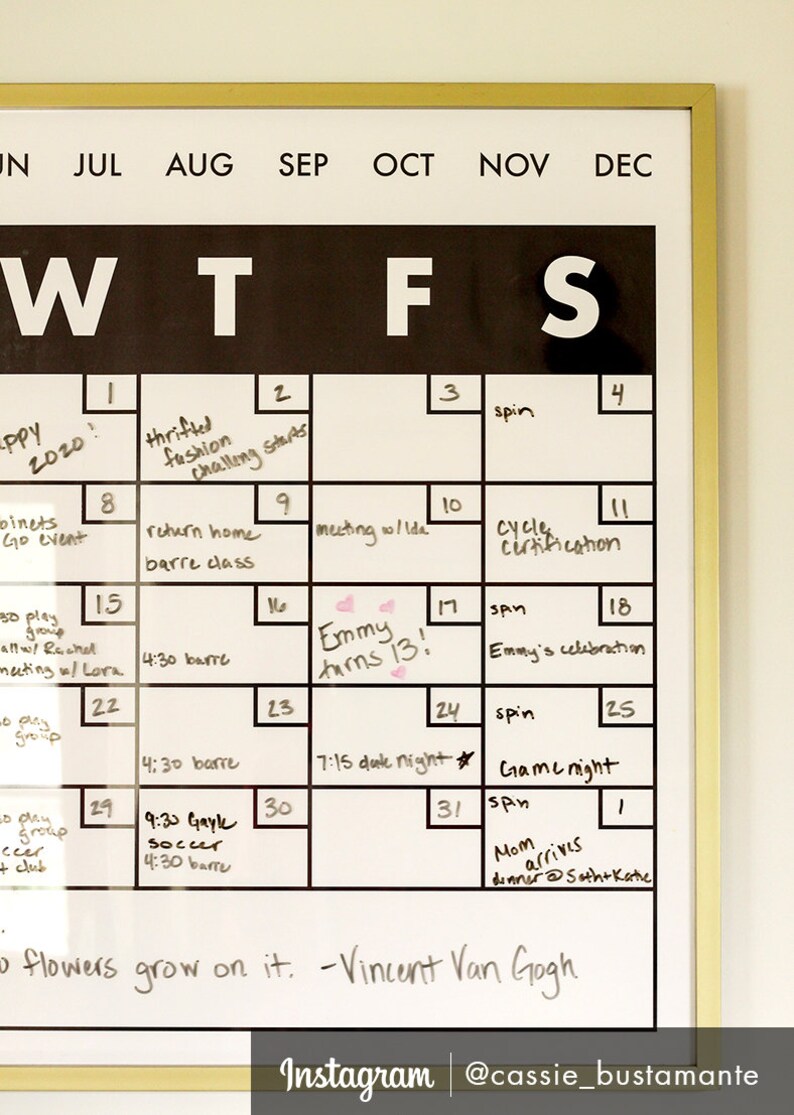 UN JUL AUG SEP OCT NOV DEC
W T F S
1 2 3 4
appy
2020!
thrifted
fashion
challeng starts
spin
8 9 10 11
binets
Go event
return home
barre class
meeting w/Ida
cycle
certification
15 16 17 18
30 play
group
all w/ Rachel
meeting w/ Lora
4:30 barre
Emmy
turns 13!
spin
Emmy's celebration
22 23 24 25
0 play
group
4:30 barre
7:15 date night
spin
Game night
29 30 31 1
0 play
group
ccer
t club
9:30 Gayle
soccer
4:30 barre
spin
Mom
arrives
dinner @ Seth+Katie
o flowers grow on it. -Vincent Van Gogh
Instagram | @cassie_bustamante